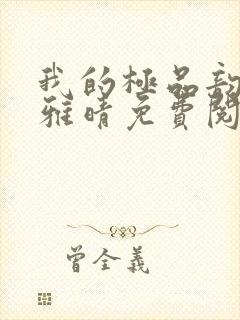 我的極品
雅晴免費閱
曾全義